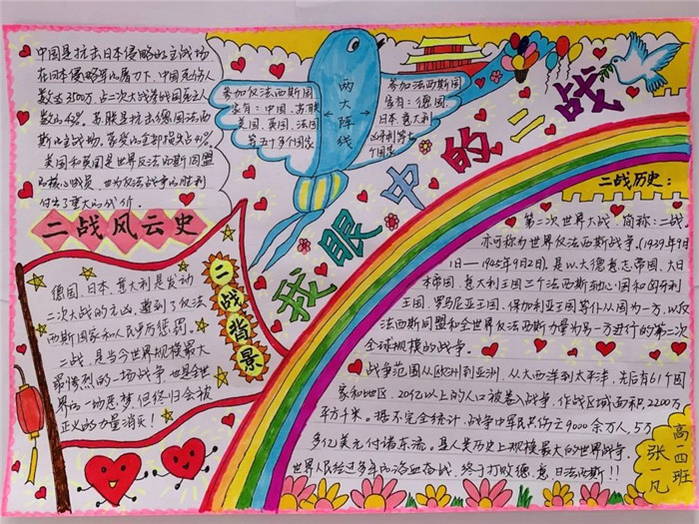 中国是抗击日本侵略的主战场
在日本侵略军的屠刀下，中国死伤人
数达3500万，占二次大战各战国死亡人
美国和英国是世界反法西斯同盟
的核心成员，也为反法战争的胜利
付出了重大的代价。
二战风云史
参加反法西斯国
家有：中国、苏联
美国、英国、法国
等五十多个国家
两大阵线
参加法西斯国
家有：德国、
日本、意大利
匈牙利等六
个国家
我眼中的二战
二战历史：
第二次世界大战，简称：二战。
亦可称为世界反法西斯战争，(1939年9月
1日—1945年9月2日)，是以大德意志帝国、大日
本帝国、意大利王国三个法西斯轴心国和匈牙利
王国、罗马尼亚王国、保加利亚王国等仆从国为一方，以反
法西斯同盟和全世界反法西斯力量为另一方进行的第二次
全球规模的战争。
战争范围从欧洲到亚洲，从大西洋到太平洋，先后有61个国
家和地区、20亿以上的人口被卷入战争，作战区域面积2200万
平方千米。据不完全统计，战争中军民共伤亡9000余万人，5万
多亿美元付诸东流。是人类历史上规模最大的世界战争。
世界人民经过多年的浴血奋战，终于打败德、意、日法西斯！！
二战背景
德国、日本、意大利是发动
二次大战的元凶，遭到了反法
西斯国家和人民严厉惩罚。
二战，是当今世界规模最大
最惨烈的一场战争，也是全世
界的一场恶梦，但终归会被
正义的力量消灭！
高一四班
张一凡